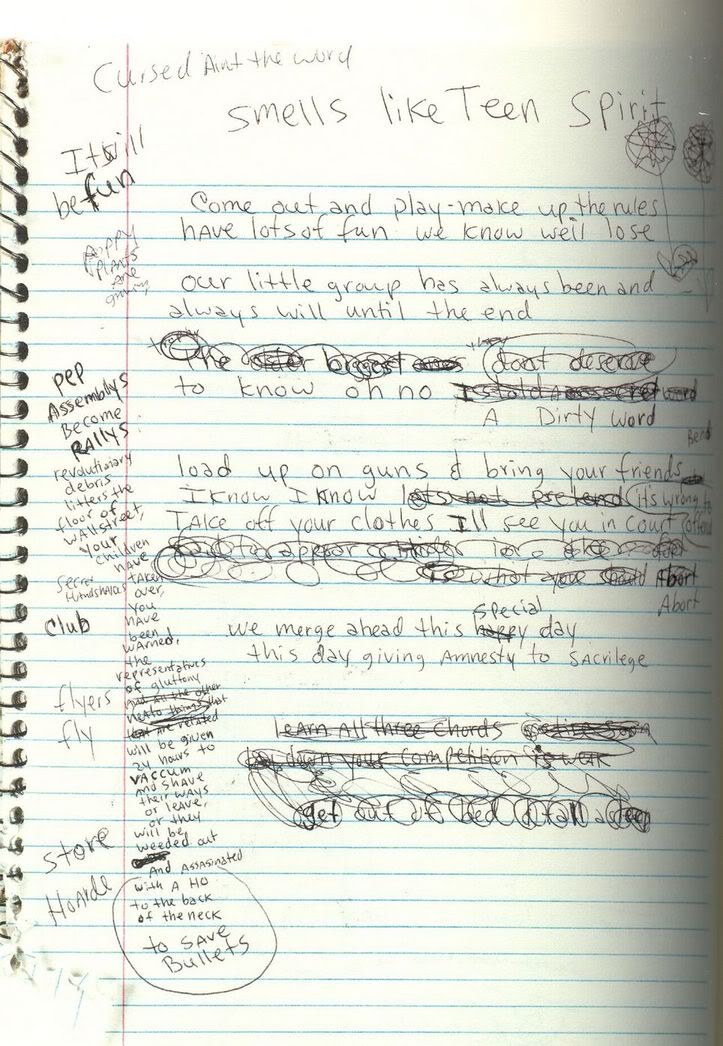 Cursed Aint the word
smells like Teen Spirit
It will
be fun
Come out and play-make up the rules
HAVE lots of fun we know we'll lose
poppy
plants
are
growing
our little group has always been and
always will until the end
The biggest they dont deserve
to know oh no Is told A secret word
A Dirty word
Bend
load up on guns & bring your friends
I know I know lets not pretend it's wrong to
TAke off your clothes I'll see you in court offend
is what you should Abort
Abort
special
we merge ahead this happy day
this day giving Amnesty to SAcrilege
LEArn All three chords
your competition is weak
get out of bed
pep
Assemblys
Become
RAllYs
revolutionary
debris
litters the
floor of
WAllstreet,
your
children
have
taken
over,
you
have
been
warned,
the
representatives
of gluttony
And all the other
that
are related
will be given
24 hours to
VACCUM
and SHAVE
their WAYS
or leave,
or they
will be
weeded out
And AssAsinated
with A HO
to the back
of the neck
to SAVE
Bullets
secret
HAndshAkes
club
flyers
fly
store
HoArde